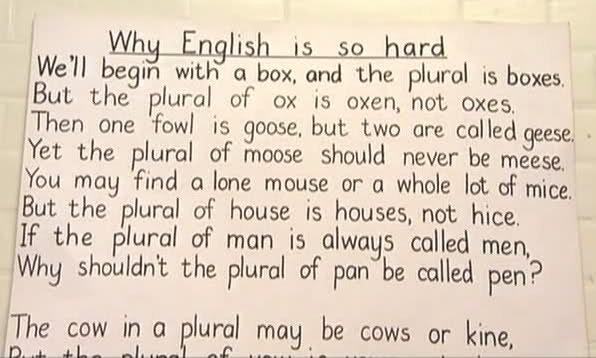 Why English is so hard
We'll begin with a box, and the plural is boxes.
But the plural of ox is oxen, not oxes.
Then one fowl is goose, but two are called geese.
Yet the plural of moose should never be meese.
You may find a lone mouse or a whole lot of mice.
But the plural of house is houses, not hice.
If the plural of man is always called men,
Why shouldn't the plural of pan be called pen?
The cow in a plural may be cows or kine,